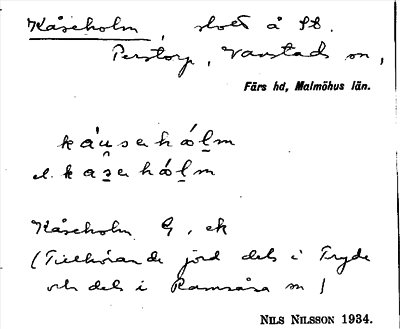 Kåseholm, slott å St.
Perstorp, Vanstads sn,
Färs hd, Malmöhus län.
káu̯sahólm
el. kasahólm
Kåseholm G, ek
(Tillhörande jord dels i Tryde
och dels i Ramsåsa sn)
NILS NILSSON 1934.